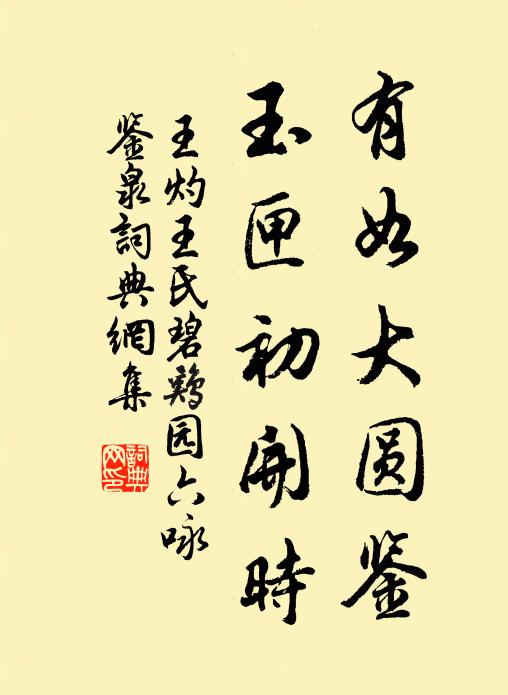 有如大圆鉴
玉匣初開時
王灼王氏碧鷄园六咏
鉴泉詞典網集
詞典
网印